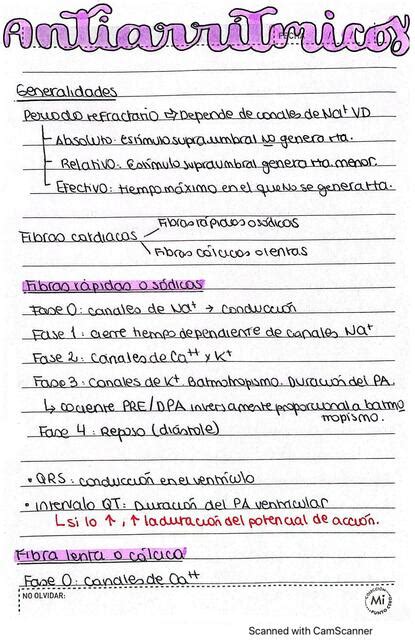 Antiarrítmicos
Generalidades
Periodo refractario ⇒ Depende de canales de Na⁺ VD
Absoluto: Estímulo supraumbral no genera rta.
Relativo: Estímulo supraumbral genera rta menor.
Efectivo: tiempo máximo en el que no se genera rta.
Fibras rápidas o sódicas
Fibras cardiacas
Fibras cálcicas o lentas
Fibras rápidas o sódicas
Fase 0: canales de Na⁺ → conducción
Fase 1: cierre tiempo dependiente de canales Na⁺
Fase 2: canales de Ca⁺⁺ y K⁺
Fase 3: canales de K⁺. Batmotropismo. Duración del PA.
↳ cociente PRE/DPA inversamente proporcional a batmo
tropismo.
Fase 4: Reposo (diástole)
• QRS: conducción en el ventrículo
• Intervalo QT: Duración del PA ventricular
↳ si lo ↑, ↑ la duración del potencial de acción.
Fibra lenta o cálcica
Fase 0: canales de Ca⁺⁺
NO OLVIDAR:
COLECCIÓN
Mi
PUNTO CERO
Scanned with CamScanner